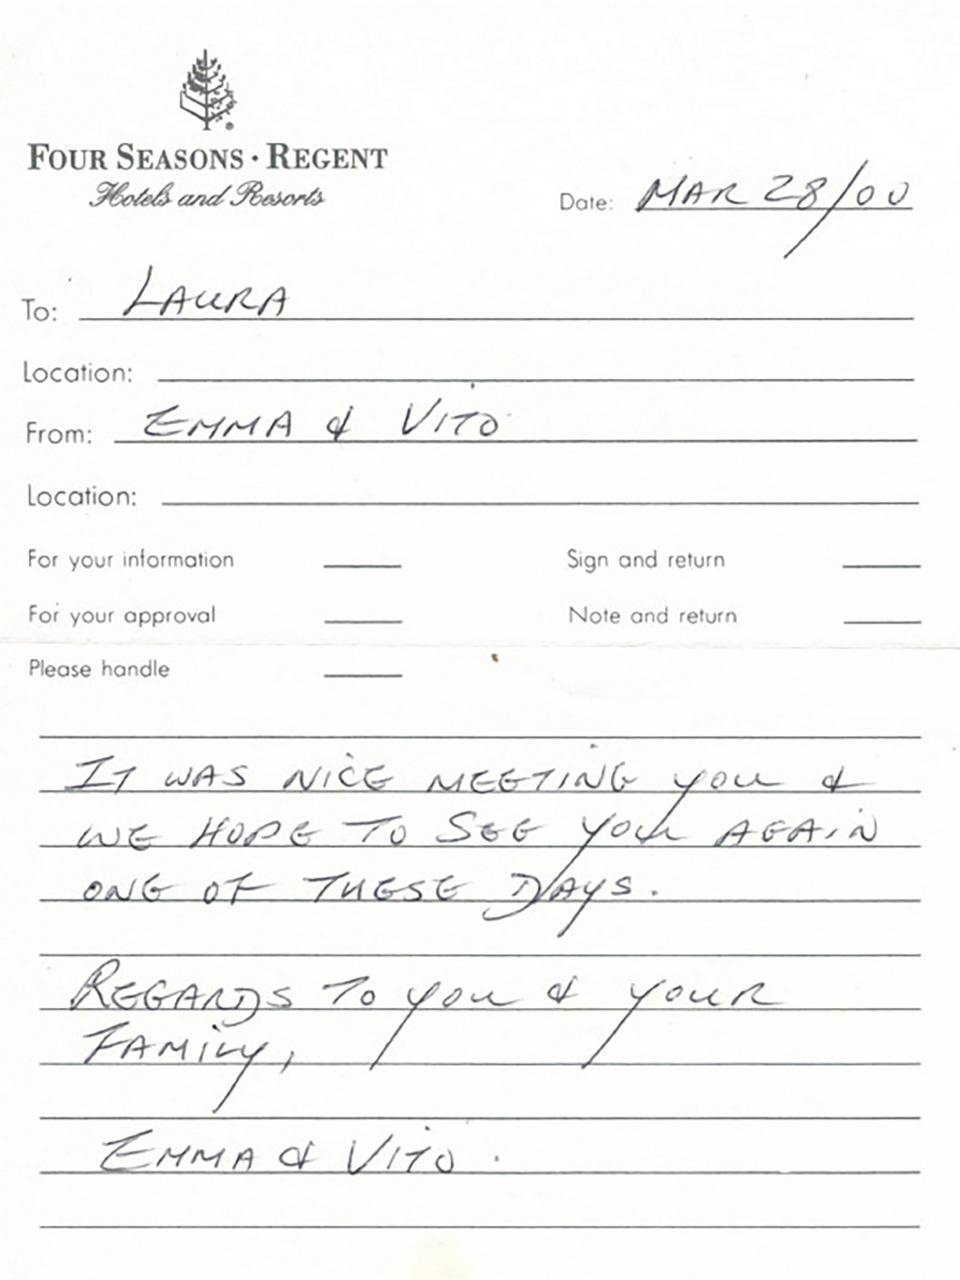 FOUR SEASONS · REGENT
Hotels and Resorts
Date: MAR 28/00
To: LAURA
Location:
From: EMMA & VITO
Location:
For your information Sign and return
For your approval Note and return
Please handle
IT WAS NICE MEETING YOU &
WE HOPE TO SEE YOU AGAIN
ONE OF THESE DAYS.
REGARDS TO YOU & YOUR
FAMILY,
EMMA & VITO.